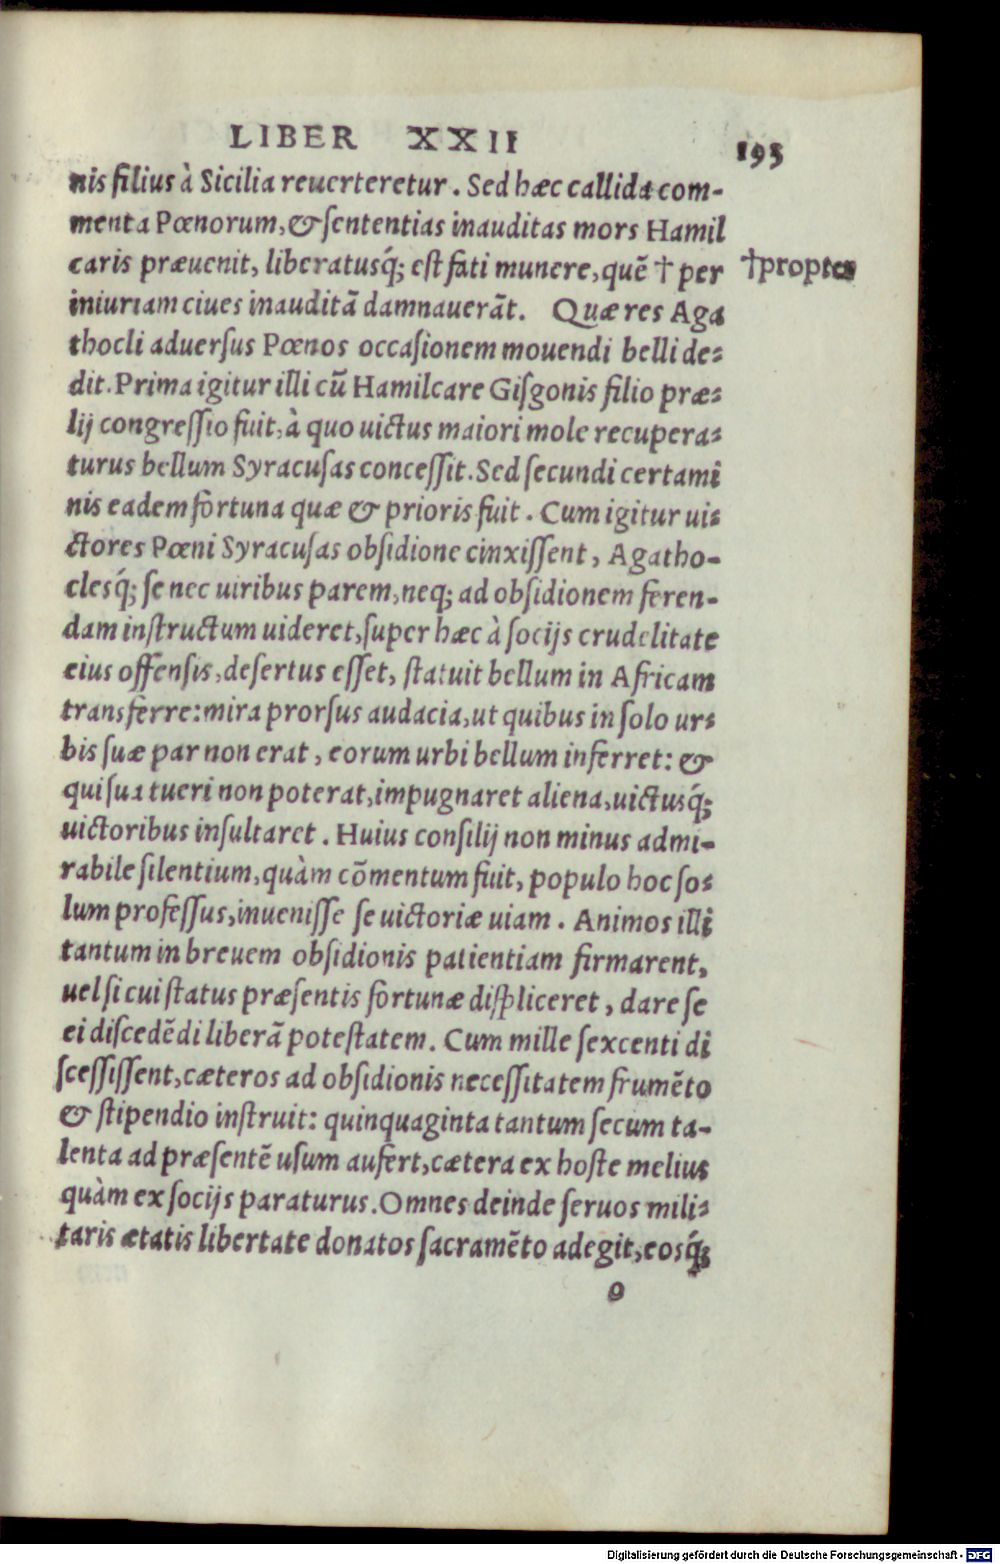 LIBER XXII
193
nis filius à Sicilia reuerteretur. Sed hæc callida com-
menta Pœnorum, & ſententias inauditas mors Hamil
caris præuenit, liberatusq́; eſt fati munere, quẽ † per
†propter
iniuriam ciues inauditã damnauerãt. Quæ res Aga
thocli aduerſus Pœnos occaſionem mouendi belli de-
dit. Prima igitur illi cũ Hamilcare Giſgonis filio præ-
lij congreſſio fuit, à quo uictus maiori mole recupera-
turus bellum Syracuſas conceſſit. Sed ſecundi certami
nis eadem fortuna quæ & prioris fuit. Cum igitur ui-
ctores Pœni Syracuſas obſidione cinxiſſent, Agatho-
clesq́; ſe nec uiribus parem, neq; ad obſidionem feren-
dam inſtructum uideret, ſuper hæc à ſocijs crudelitate
eius offenſis, deſertus eſſet, ſtatuit bellum in Africam
transferre: mira prorſus audacia, ut quibus in ſolo ur-
bis ſuæ par non erat, eorum urbi bellum inferret: &
qui ſua tueri non poterat, impugnaret aliena, uictusq́;
uictoribus inſultaret. Huius conſilij non minus admi-
rabile ſilentium, quàm cõmentum fuit, populo hoc ſo-
lum profeſſus, inueniſſe ſe uictoriæ uiam. Animos illi
tantum in breuem obſidionis patientiam firmarent,
uel ſi cui ſtatus præſentis fortunæ diſpliceret, dare ſe
ei diſcedẽdi liberã poteſtatem. Cum mille ſexcenti di
ſceſſiſſent, cæteros ad obſidionis neceſſitatem frumẽto
& ſtipendio inſtruit: quinquaginta tantum ſecum ta-
lenta ad præſentẽ uſum aufert, cætera ex hoſte melius
quàm ex ſocijs paraturus. Omnes deinde ſeruos mili-
taris ætatis libertate donatos ſacramẽto adegit, eosq́;
o
Digitalisierung gefördert durch die Deutsche Forschungsgemeinschaft - DFG